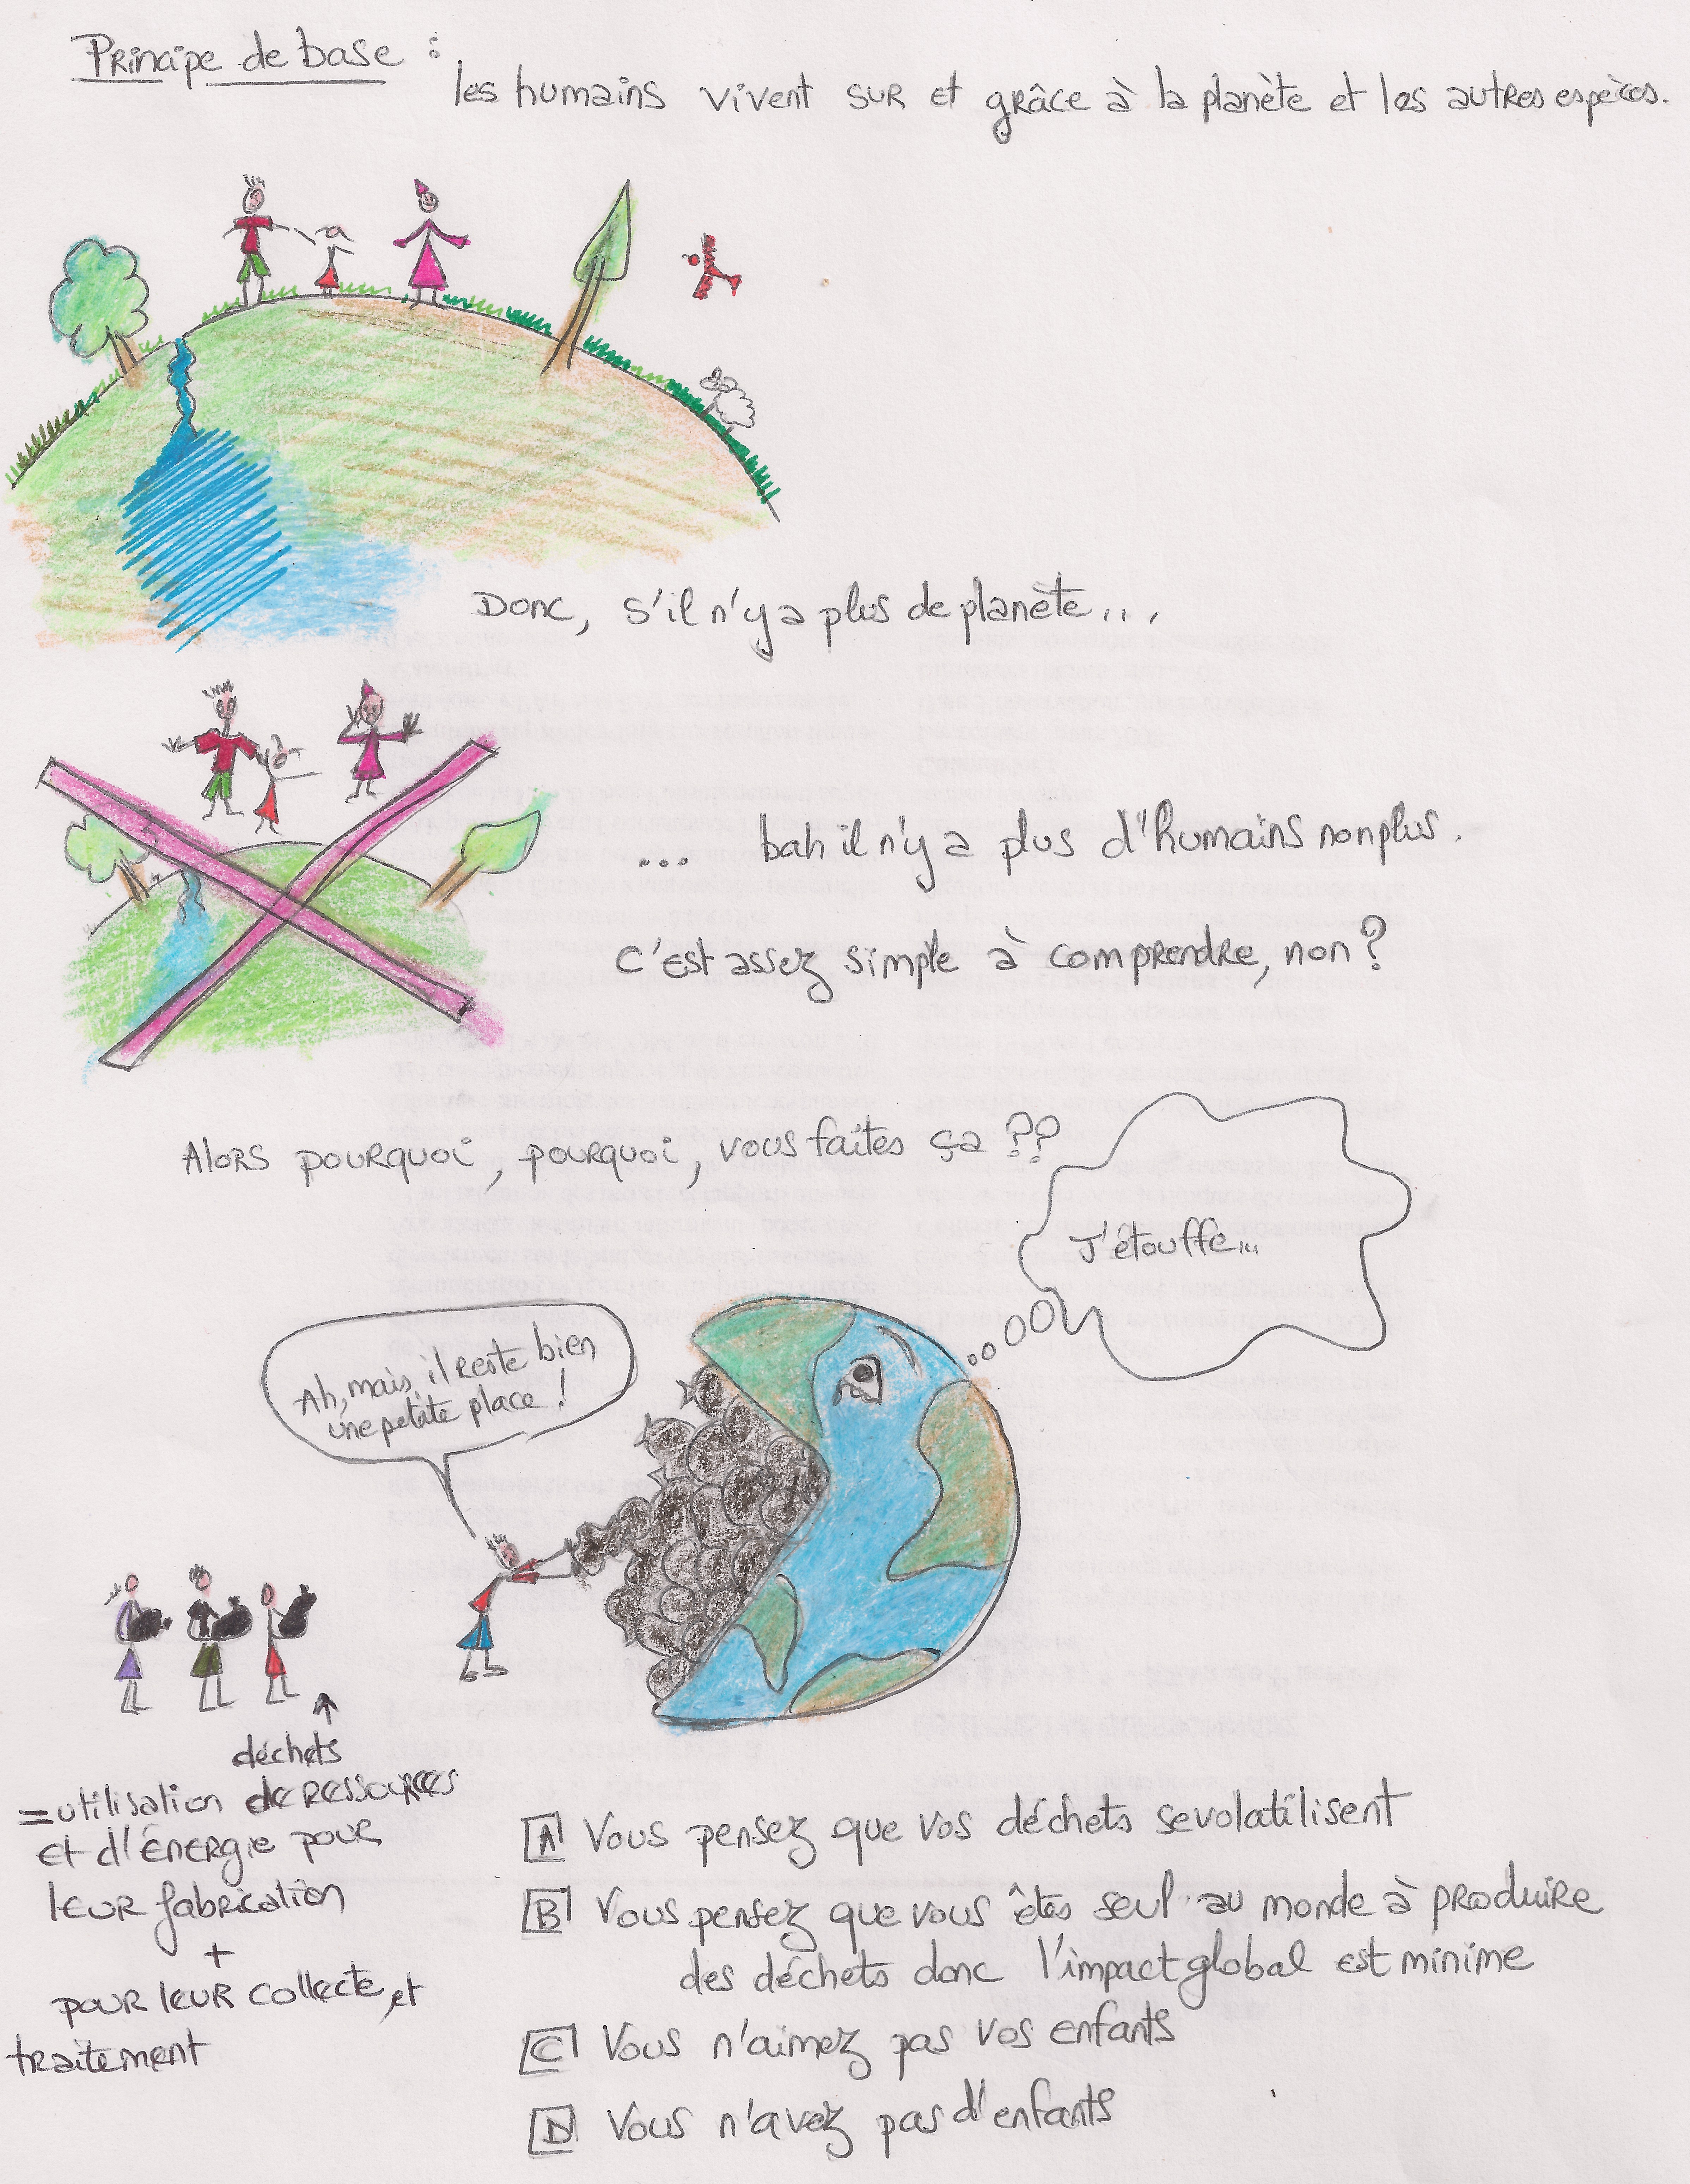 Principe de base :
les humains vivent sur et grâce à la planète et les autres espèces.
Donc, s'il n'y a plus de planète...
... bah il n'y a plus d'humains non plus.
C'est assez simple à comprendre, non ?
Alors pourquoi, pourquoi, vous faites ça ??
J'étouffe...
Ah, mais il reste bien
une petite place !
déchets
= utilisation de ressources
et d'énergie pour
leur fabrication
+
pour leur collecte et
traitement
A Vous pensez que vos déchets se volatilisent
B Vous pensez que vous êtes seul au monde à produire
des déchets donc l'impact global est minime
C Vous n'aimez pas vos enfants
D Vous n'avez pas d'enfants